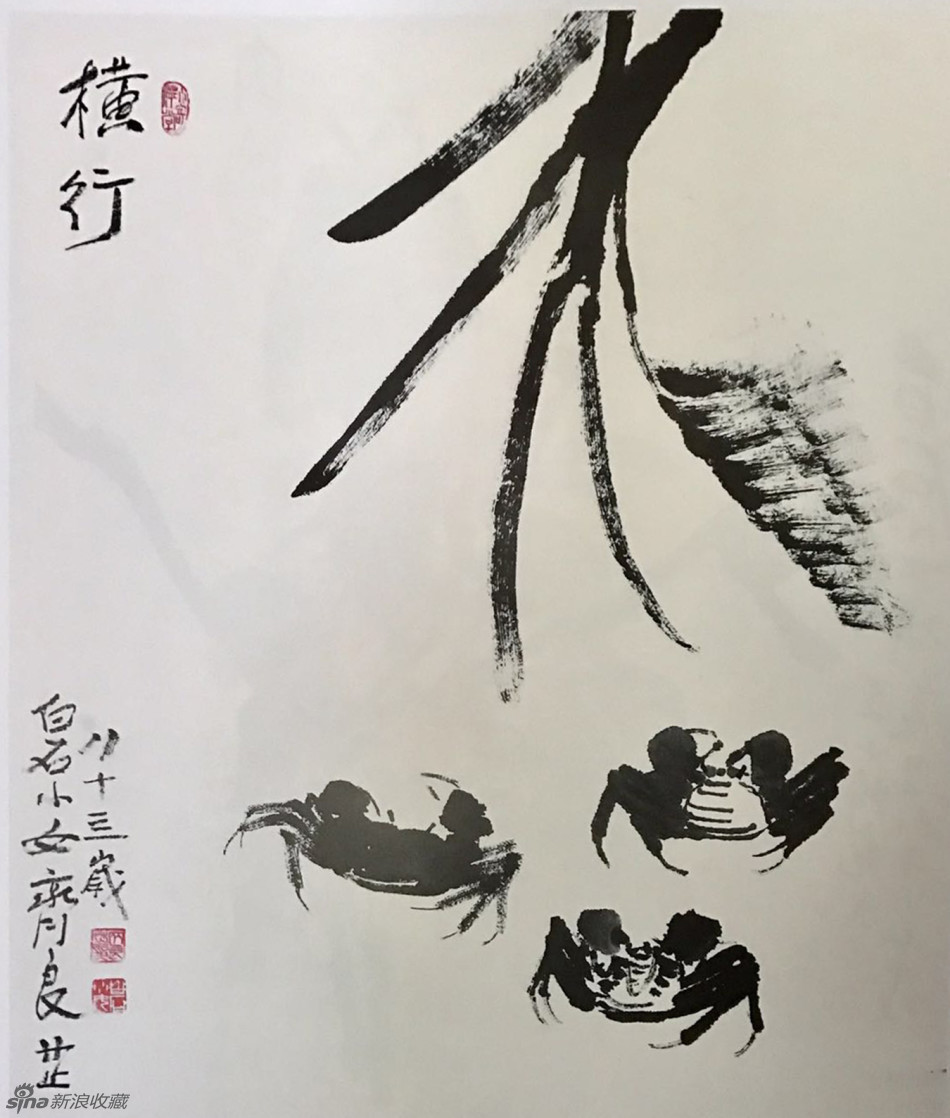 橫行
八十三歲
白石小女齊良芷
sina新浪收藏